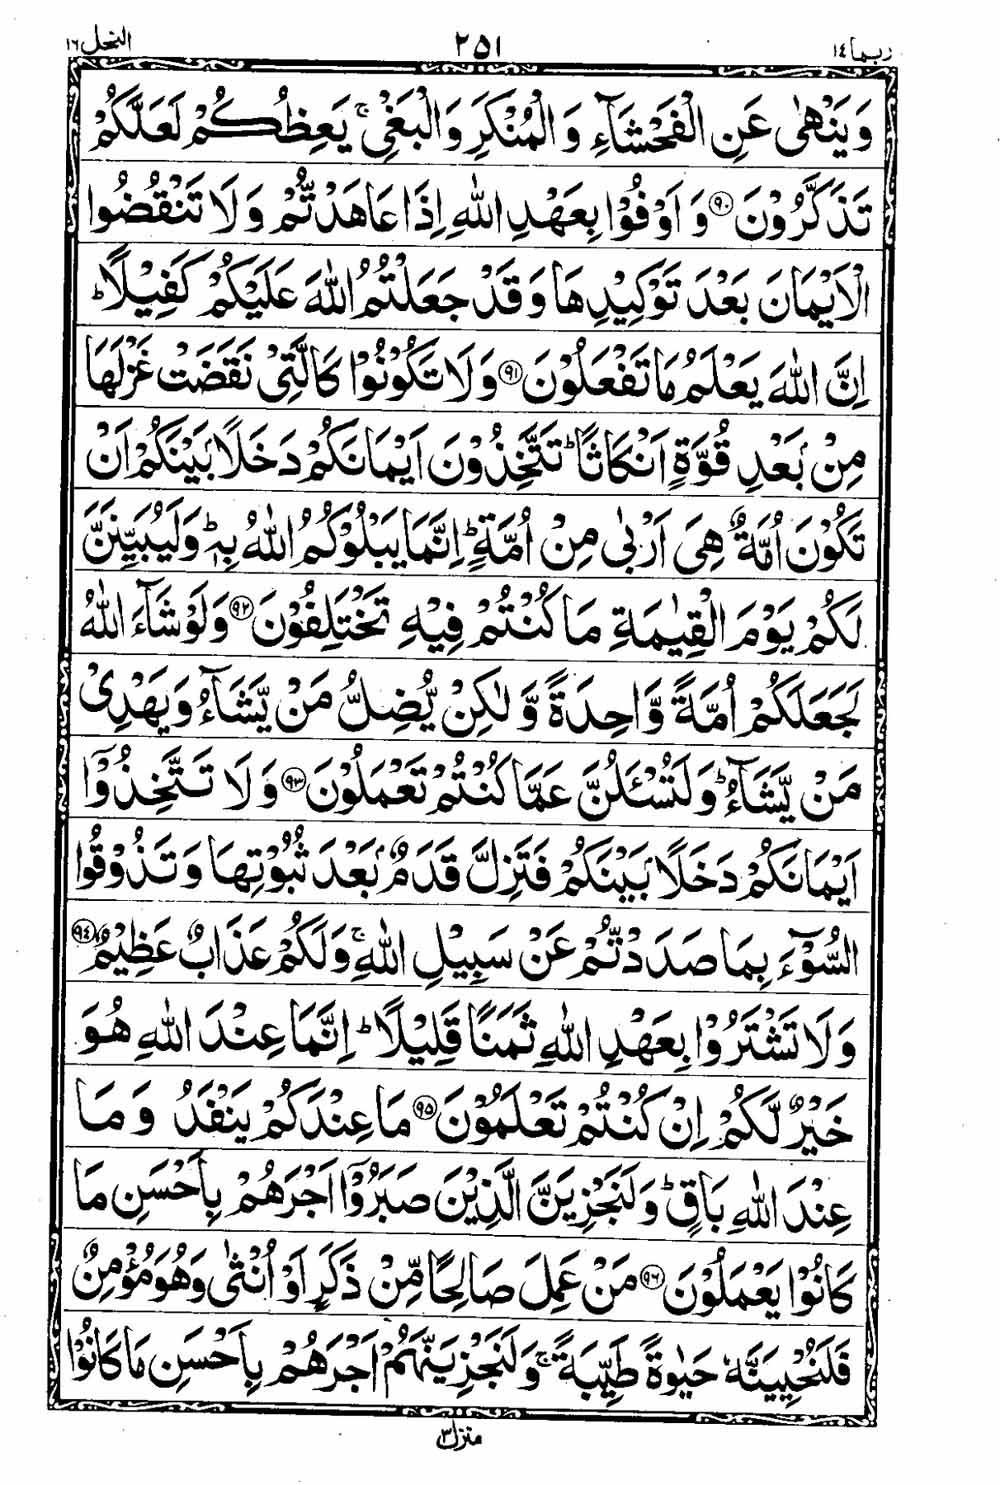 ربما ١٤ ٢٥١ النحل ١٦
وَيَنْهٰى عَنِ الْفَحْشَآءِ وَالْمُنْكَرِ وَالْبَغْيِ ۚ يَعِظُكُمْ لَعَلَّكُمْ
تَذَكَّرُوْنَ ﴿٩٠﴾ وَاَوْفُوْا بِعَهْدِ اللّٰهِ اِذَا عَاهَدْتُّمْ وَلَا تَنْقُضُوا
الْاَيْمَانَ بَعْدَ تَوْكِيْدِهَا وَقَدْ جَعَلْتُمُ اللّٰهَ عَلَيْكُمْ كَفِيْلًا ؕ
اِنَّ اللّٰهَ يَعْلَمُ مَا تَفْعَلُوْنَ ﴿٩١﴾ وَلَا تَكُوْنُوْا كَالَّتِيْ نَقَضَتْ غَزْلَهَا
مِنْۢ بَعْدِ قُوَّةٍ اَنْكَاثًا ؕ تَتَّخِذُوْنَ اَيْمَانَكُمْ دَخَلًاۢ بَيْنَكُمْ اَنْ
تَكُوْنَ اُمَّةٌ هِيَ اَرْبٰى مِنْ اُمَّةٍ ؕ اِنَّمَا يَبْلُوْكُمُ اللّٰهُ بِهٖ ؕ وَلَيُبَيِّنَنَّ
لَكُمْ يَوْمَ الْقِيٰمَةِ مَا كُنْتُمْ فِيْهِ تَخْتَلِفُوْنَ ﴿٩٢﴾ وَلَوْ شَآءَ اللّٰهُ
لَجَعَلَكُمْ اُمَّةً وَّاحِدَةً وَّلٰكِنْ يُّضِلُّ مَنْ يَّشَآءُ وَيَهْدِيْ
مَنْ يَّشَآءُ ؕ وَلَتُسْـَٔلُنَّ عَمَّا كُنْتُمْ تَعْمَلُوْنَ ﴿٩٣﴾ وَلَا تَتَّخِذُوْٓا
اَيْمَانَكُمْ دَخَلًاۢ بَيْنَكُمْ فَتَزِلَّ قَدَمٌۢ بَعْدَ ثُبُوْتِهَا وَتَذُوْقُوا
السُّوْٓءَ بِمَا صَدَدْتُّمْ عَنْ سَبِيْلِ اللّٰهِ ۚ وَلَكُمْ عَذَابٌ عَظِيْمٌ ﴿٩٤﴾
وَلَا تَشْتَرُوْا بِعَهْدِ اللّٰهِ ثَمَنًا قَلِيْلًا ؕ اِنَّمَا عِنْدَ اللّٰهِ هُوَ
خَيْرٌ لَّكُمْ اِنْ كُنْتُمْ تَعْلَمُوْنَ ﴿٩٥﴾ مَا عِنْدَكُمْ يَنْفَدُ وَمَا
عِنْدَ اللّٰهِ بَاقٍ ؕ وَلَنَجْزِيَنَّ الَّذِيْنَ صَبَرُوْٓا اَجْرَهُمْ بِاَحْسَنِ مَا
كَانُوْا يَعْمَلُوْنَ ﴿٩٦﴾ مَنْ عَمِلَ صَالِحًا مِّنْ ذَكَرٍ اَوْ اُنْثٰى وَهُوَ مُؤْمِنٌ
فَلَنُحْيِيَنَّهٗ حَيٰوةً طَيِّبَةً ۚ وَلَنَجْزِيَنَّهُمْ اَجْرَهُمْ بِاَحْسَنِ مَا كَانُوْا
منزل ٣